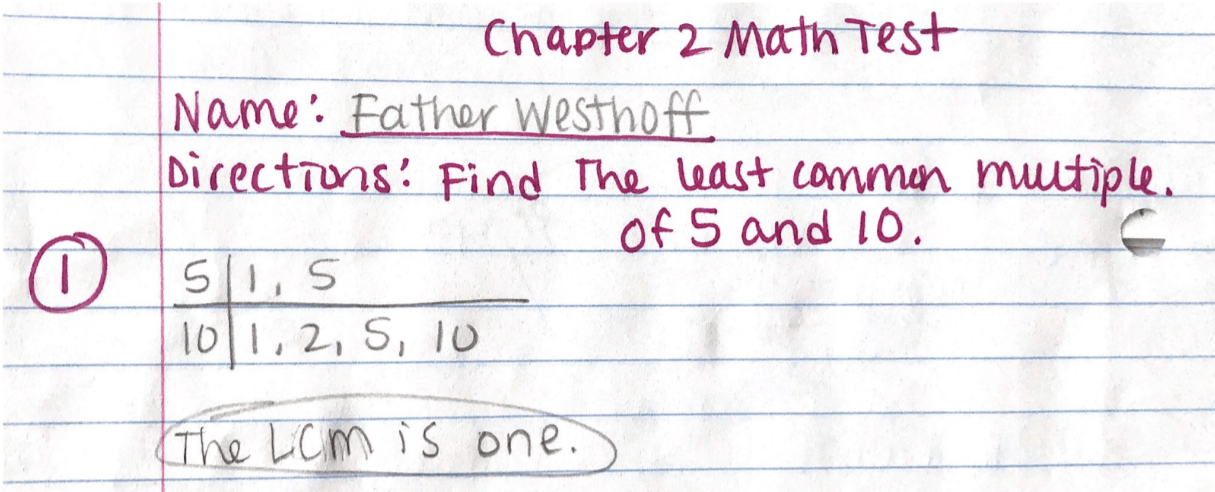 Chapter 2 Math Test
Name: Father Westhoff
Directions: Find The least common multiple.
of 5 and 10.
1
5 | 1, 5
10 | 1, 2, 5, 10
The LCM is one.